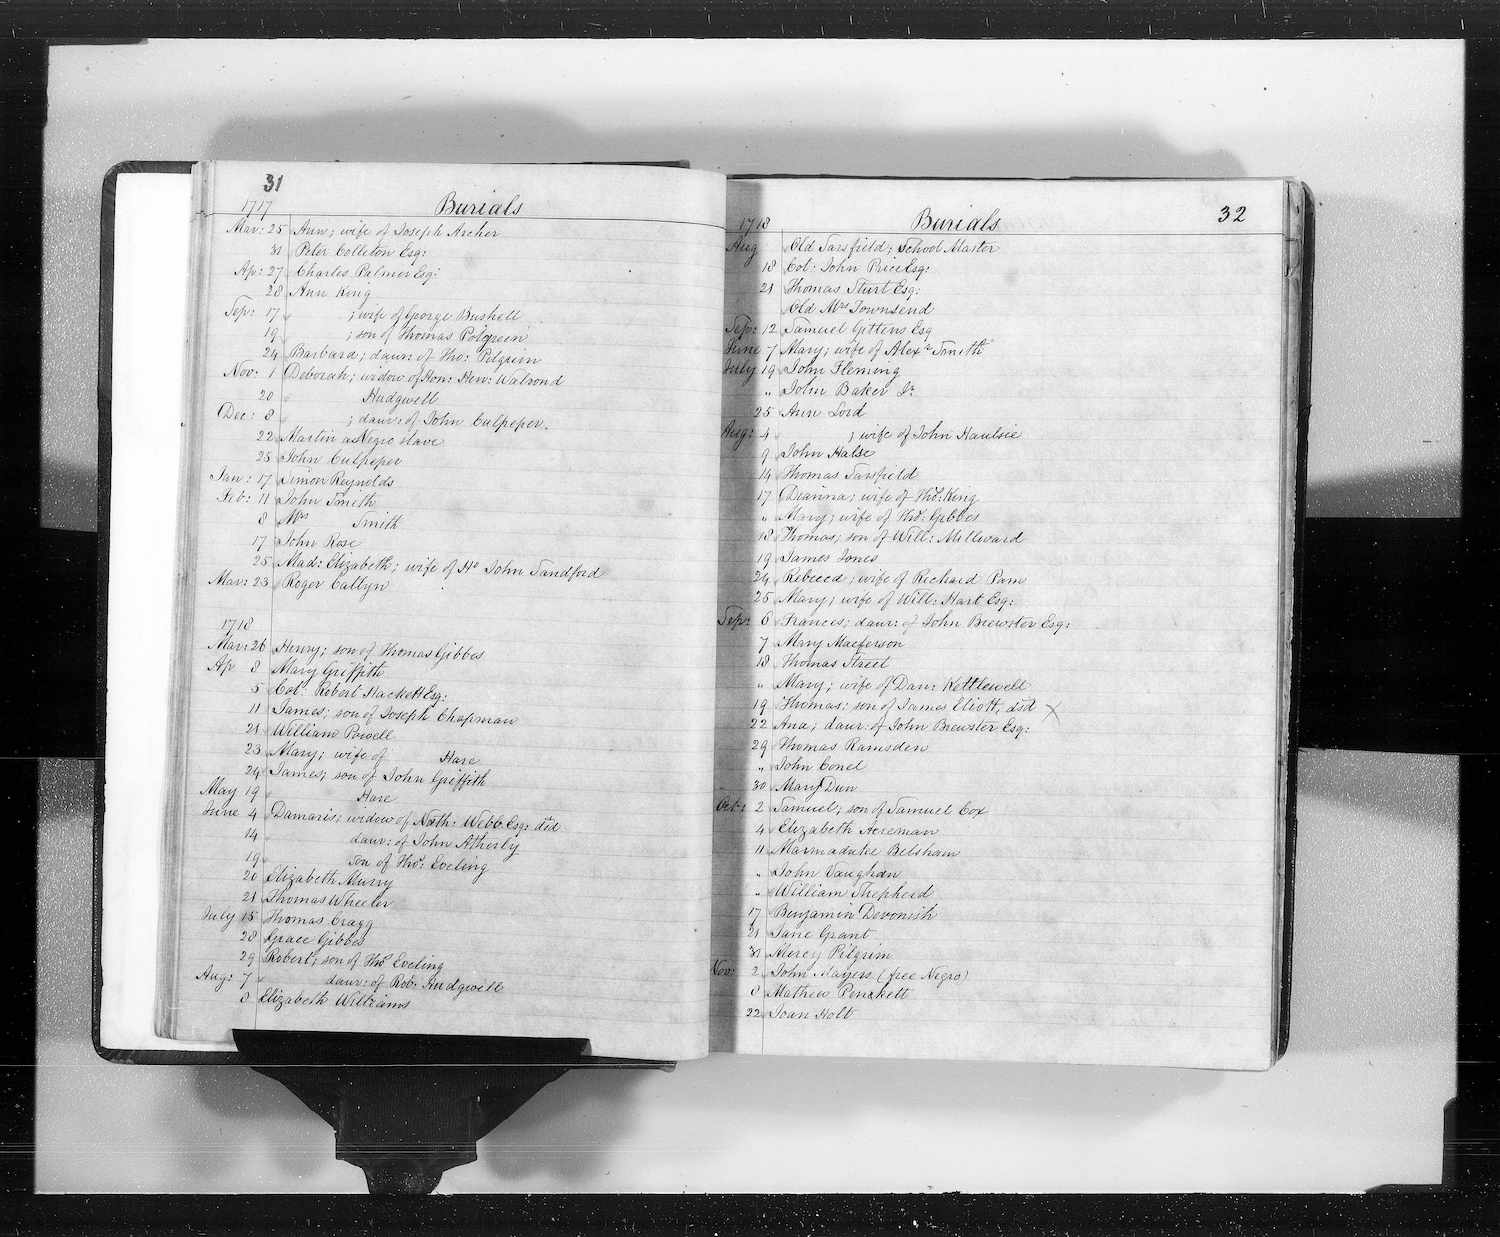 31
1717 Burials
Mar: 25 Ann; wife of Joseph Archer
31 Peter Colleton Esq:
Ap: 27 Charles Palmer Esq:
28 Ann King
Sep: 17 ; wife of George Bushell
19 ; son of Thomas Polgreen
24 Barbara; daur: of Tho: Pilgrim
Nov: 1 Deborah; widow of Hon: Hen: Walrond
20 Hudgwell
Dec: 8 ; daur: of John Culpeper.
22 Martin a Negro slave
25 John Culpeper
Jan: 17 Simon Reynolds
Feb: 11 John Smith
8 Mrs Smith
17 John Rose
25 Mad: Elizabeth; wife of Ho John Sandford
Mar: 23 Roger Catlyn
1718
Mar: 26 Henry; son of Thomas Gibbes
Ap 3 Mary Griffith
5 Col: Robert Hackett Esq:
11 James; son of Joseph Chapman
21 William Powell
23 Mary; wife of Hare
24 James; son of John Griffith
May 19 Hare
June 4 Damaris; widow of Nath: Webb Esq: dsd
14 daur: of John Atherly
19 son of Tho: Eveling
20 Elizabeth Murry
21 Thomas Wheeler
July 15 Thomas Cragg
28 Grace Gibbes
29 Robert; son of Tho: Eveling
Aug: 7 daur: of Rob: Hudgwell
8 Elizabeth Williams
32
1718 Burials
Aug Old Sarsfield; School Master
18 Col: John Price Esq:
21 Thomas Sturt Esq:
Old Mrs Townsend
Sep: 12 Samuel Gittens Esq
June 7 Mary; wife of Alexr Smith
July 19 John Fleming
" John Baker Jr
25 Ann Lord
Aug: 4 ; wife of John Haulsie
9 John Halse
14 Thomas Sarsfield
17 Dianna; wife of Tho: King
" Mary; wife of Tho: Gibbes
18 Thomas; son of Will: Milleward
19 James Jones
24 Rebecca; wife of Richard Pam
25 Mary; wife of Will: Hart Esq:
Sep: 6 Frances; daur: of John Brewster Esq:
7 Mary Macferson
18 Thomas Street
" Mary; wife of Dan: Kettlewell
19 Thomas; son of James Eliott, dsd X
22 Ana; daur: of John Brewster Esq:
29 Thomas Ramsden
" John Conel
30 Mary Dun
Oct: 2 Samuel; son of Samuel Cox
4 Elizabeth Acreman
11 Marmaduke Belsham
" John Vaughan
" William Shepherd
17 Benjamin Devonish
21 Jane Grant
31 Mercy Pilgrim
Nov: 2 John Mayers (free Negro)
8 Mathew Penckett
22 Joan Holt